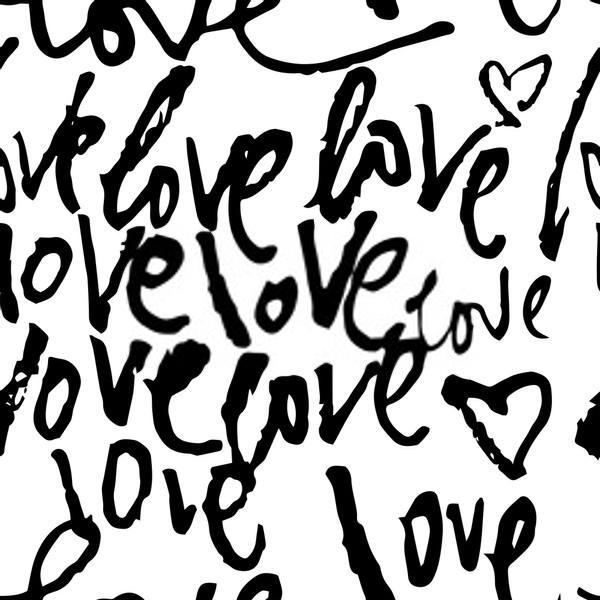 love
ove love love l
love love love
love love
love love
ove